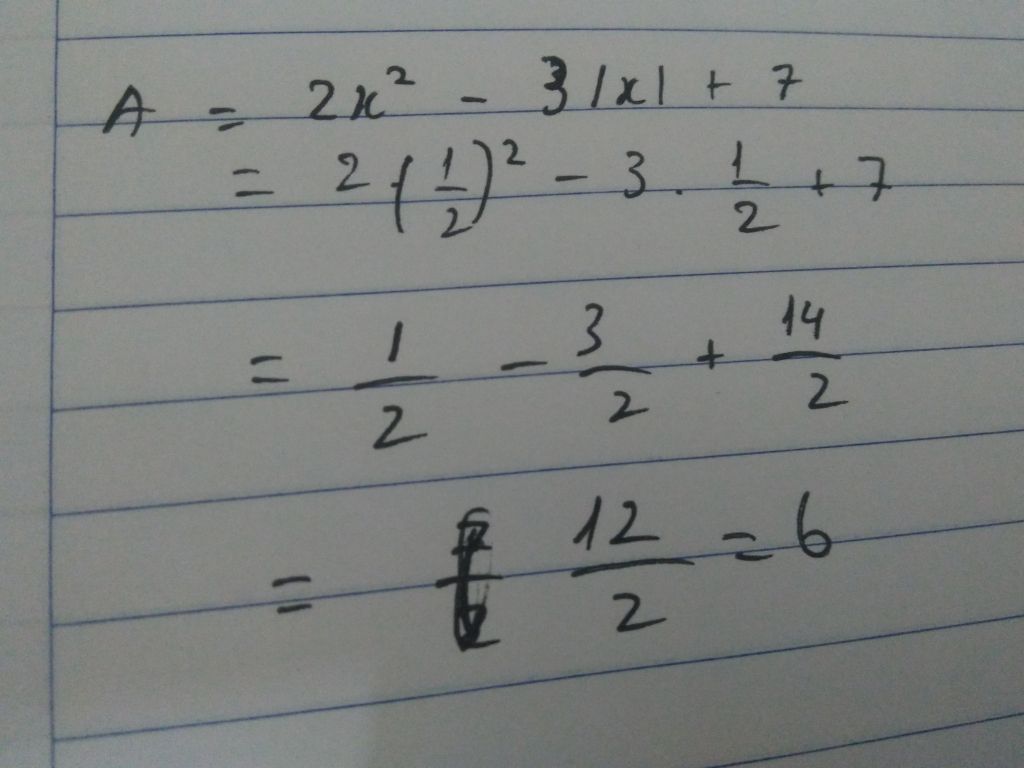 A = 2x² - 3|x| + 7
= 2(1/2)² - 3 . 1/2 + 7
= 1/2 - 3/2 + 14/2
= 12/2 = 6